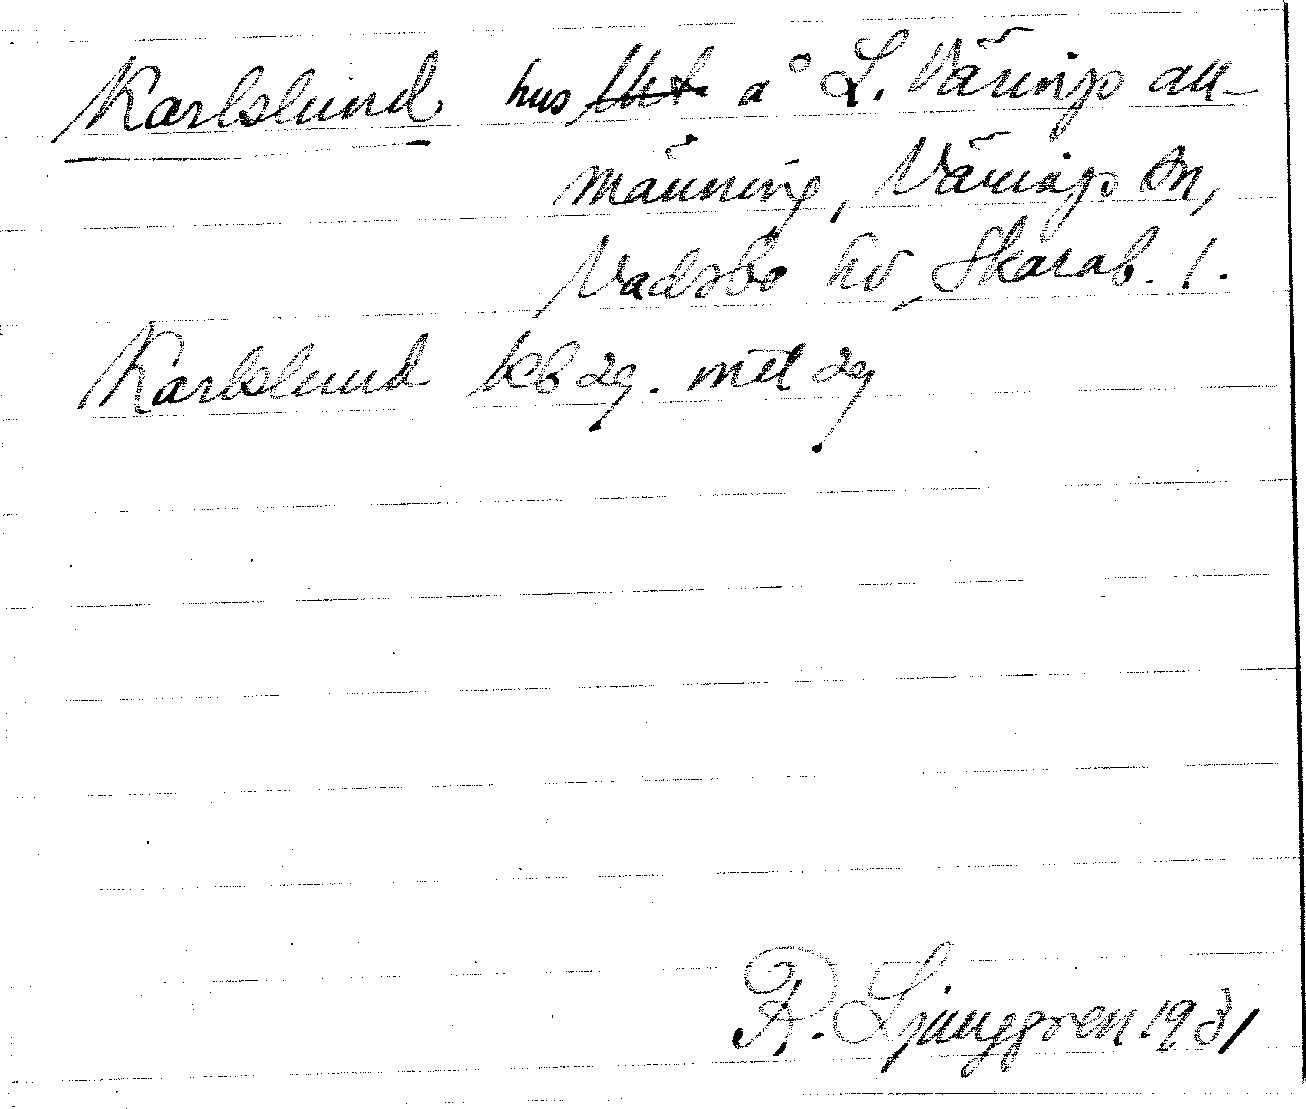 Karlslund hus å L. Värings all-
männing, Värings sn,
Vadsbo hd, Skarab. l.
Karlslund kb 29. mtl 29
R. Ljunggren 1931